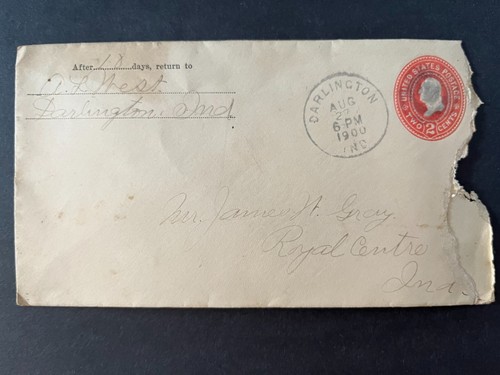 After 10 days, return to
West
Darlington, Ind
DARLINGTON
AUG
22
6-PM
1900
IND
UNITED STATES POSTAGE
TWO 2 CENTS
Mr. James W. Gray
Royal Centre
Ind.